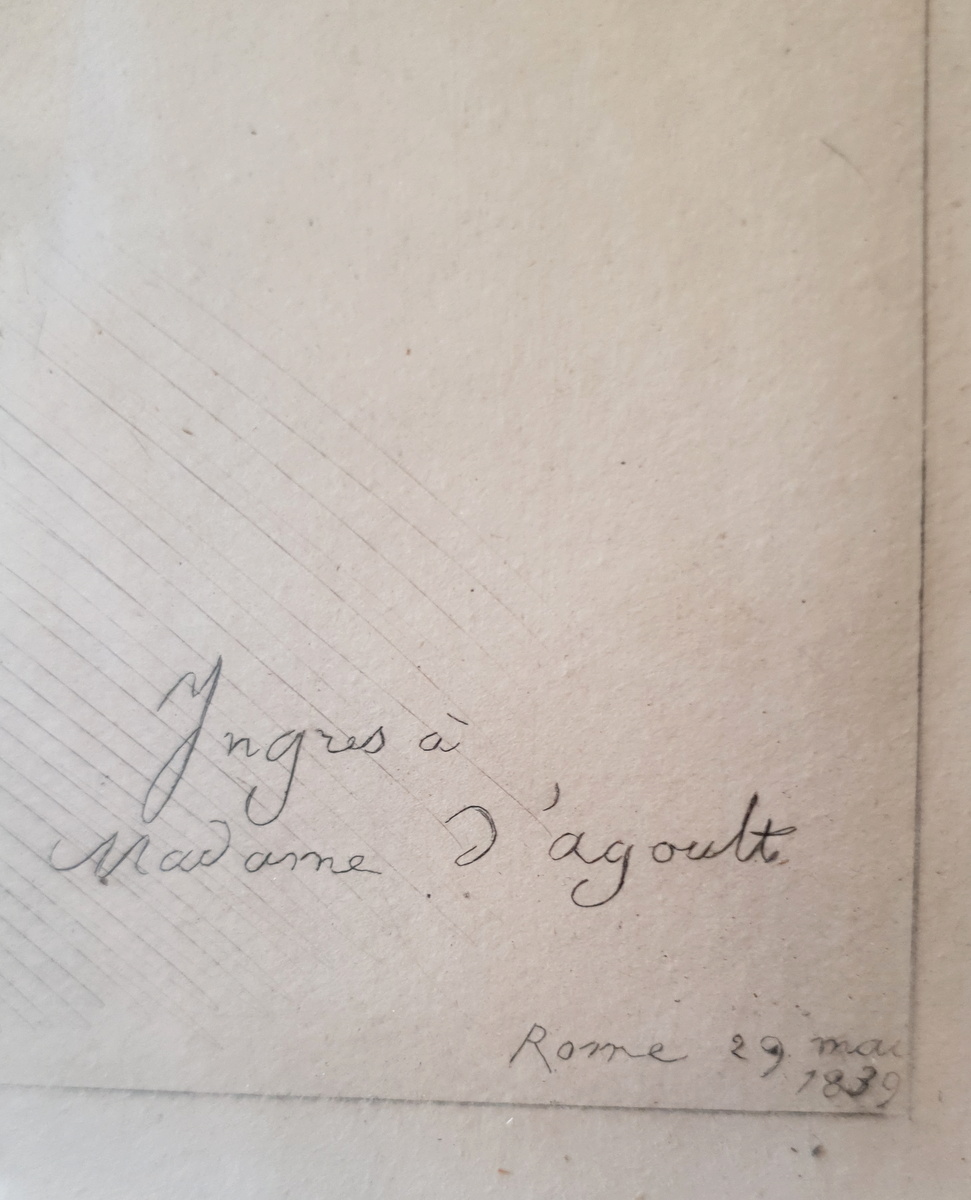 Ingres à
Madame D'agoult
Rome 29 mai
1839